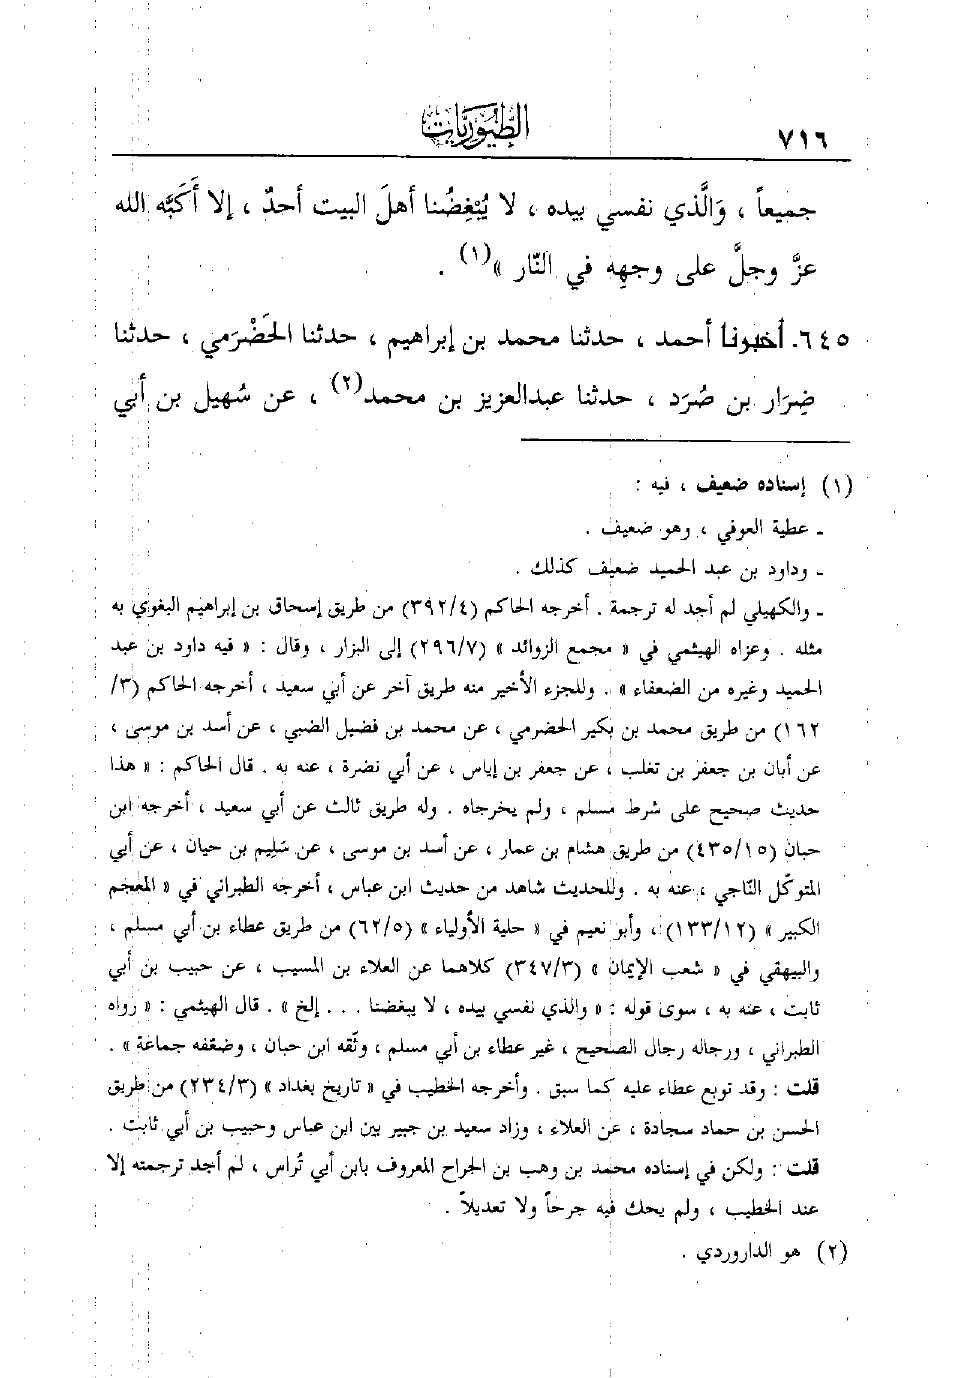 ٧١٦
الطيوريات
جميعاً ، وَالَّذي نفسي بيده ، لا يُبْغِضُنا أهلَ البيت أحدٌ ، إلا أَكَبَّه الله
عزَّ وجلَّ على وجهِه في النّار »(١) .
٦٤٥. أخبرنا أحمد ، حدثنا محمد بن إبراهيم ، حدثنا الحَضْرَمي ، حدثنا
ضِرَار بن صُرَد ، حدثنا عبدالعزيز بن محمد(٢) ، عن سُهيل بن أبي
(١) إسناده ضعيف ، فيه :
ـ عطية العوفي ، وهو ضعيف .
ـ وداود بن عبد الحميد ضعيف كذلك .
ـ والكهيلي لم أجد له ترجمة . أخرجه الحاكم (٣٩٢/٤) من طريق إسحاق بن إبراهيم البغوي به
مثله . وعزاه الهيثمي في « مجمع الزوائد » (٢٩٦/٧) إلى البزار ، وقال : « فيه داود بن عبد
الحميد وغيره من الضعفاء » . وللجزء الأخير منه طريق آخر عن أبي سعيد ، أخرجه الحاكم (٣/
١٦٢) من طريق محمد بن بكير الحضرمي ، عن محمد بن فضيل الضبي ، عن أسد بن موسى ،
عن أبان بن جعفر بن تغلب ، عن جعفر بن إياس ، عن أبي نضرة ، عنه به . قال الحاكم : « هذا
حديث صحيح على شرط مسلم ، ولم يخرجاه . وله طريق ثالث عن أبي سعيد ، أخرجه ابن
حبان (٤٣٥/١٥) من طريق هشام بن عمار ، عن أسد بن موسى ، عن سَلِيم بن حيان ، عن أبي
المتوكّل النّاجي ، عنه به . وللحديث شاهد من حديث ابن عباس ، أخرجه الطبراني في « المعجم
الكبير » (١٣٣/١٢) ، وأبو نعيم في « حلية الأولياء » (٦٢/٥) من طريق عطاء بن أبي مسلم ،
والبيهقي في « شعب الإيمان » (٣٤٧/٣) كلاهما عن العلاء بن المسيب ، عن حبيب بن أبي
ثابت ، عنه به ، سوى قوله : « والذي نفسي بيده ، لا يبغضنا . . . إلخ » . قال الهيثمي : « رواه
الطبراني ، ورجاله رجال الصحيح ، غير عطاء بن أبي مسلم ، وثّقه ابن حبان ، وضعّفه جماعة » .
قلت : وقد توبع عطاء عليه كما سبق . وأخرجه الخطيب في « تاريخ بغداد » (٢٣٤/٣) من طريق
الحسن بن حماد سجادة ، عن العلاء ، وزاد سعيد بن جبير بين ابن عباس وحبيب بن أبي ثابت .
قلت : ولكن في إسناده محمد بن وهب بن الجراح المعروف بابن أبي تُراس ، لم أجد ترجمته إلا
عند الخطيب ، ولم يحك فيه جرحاً ولا تعديلاً .
(٢) هو الداروردي .